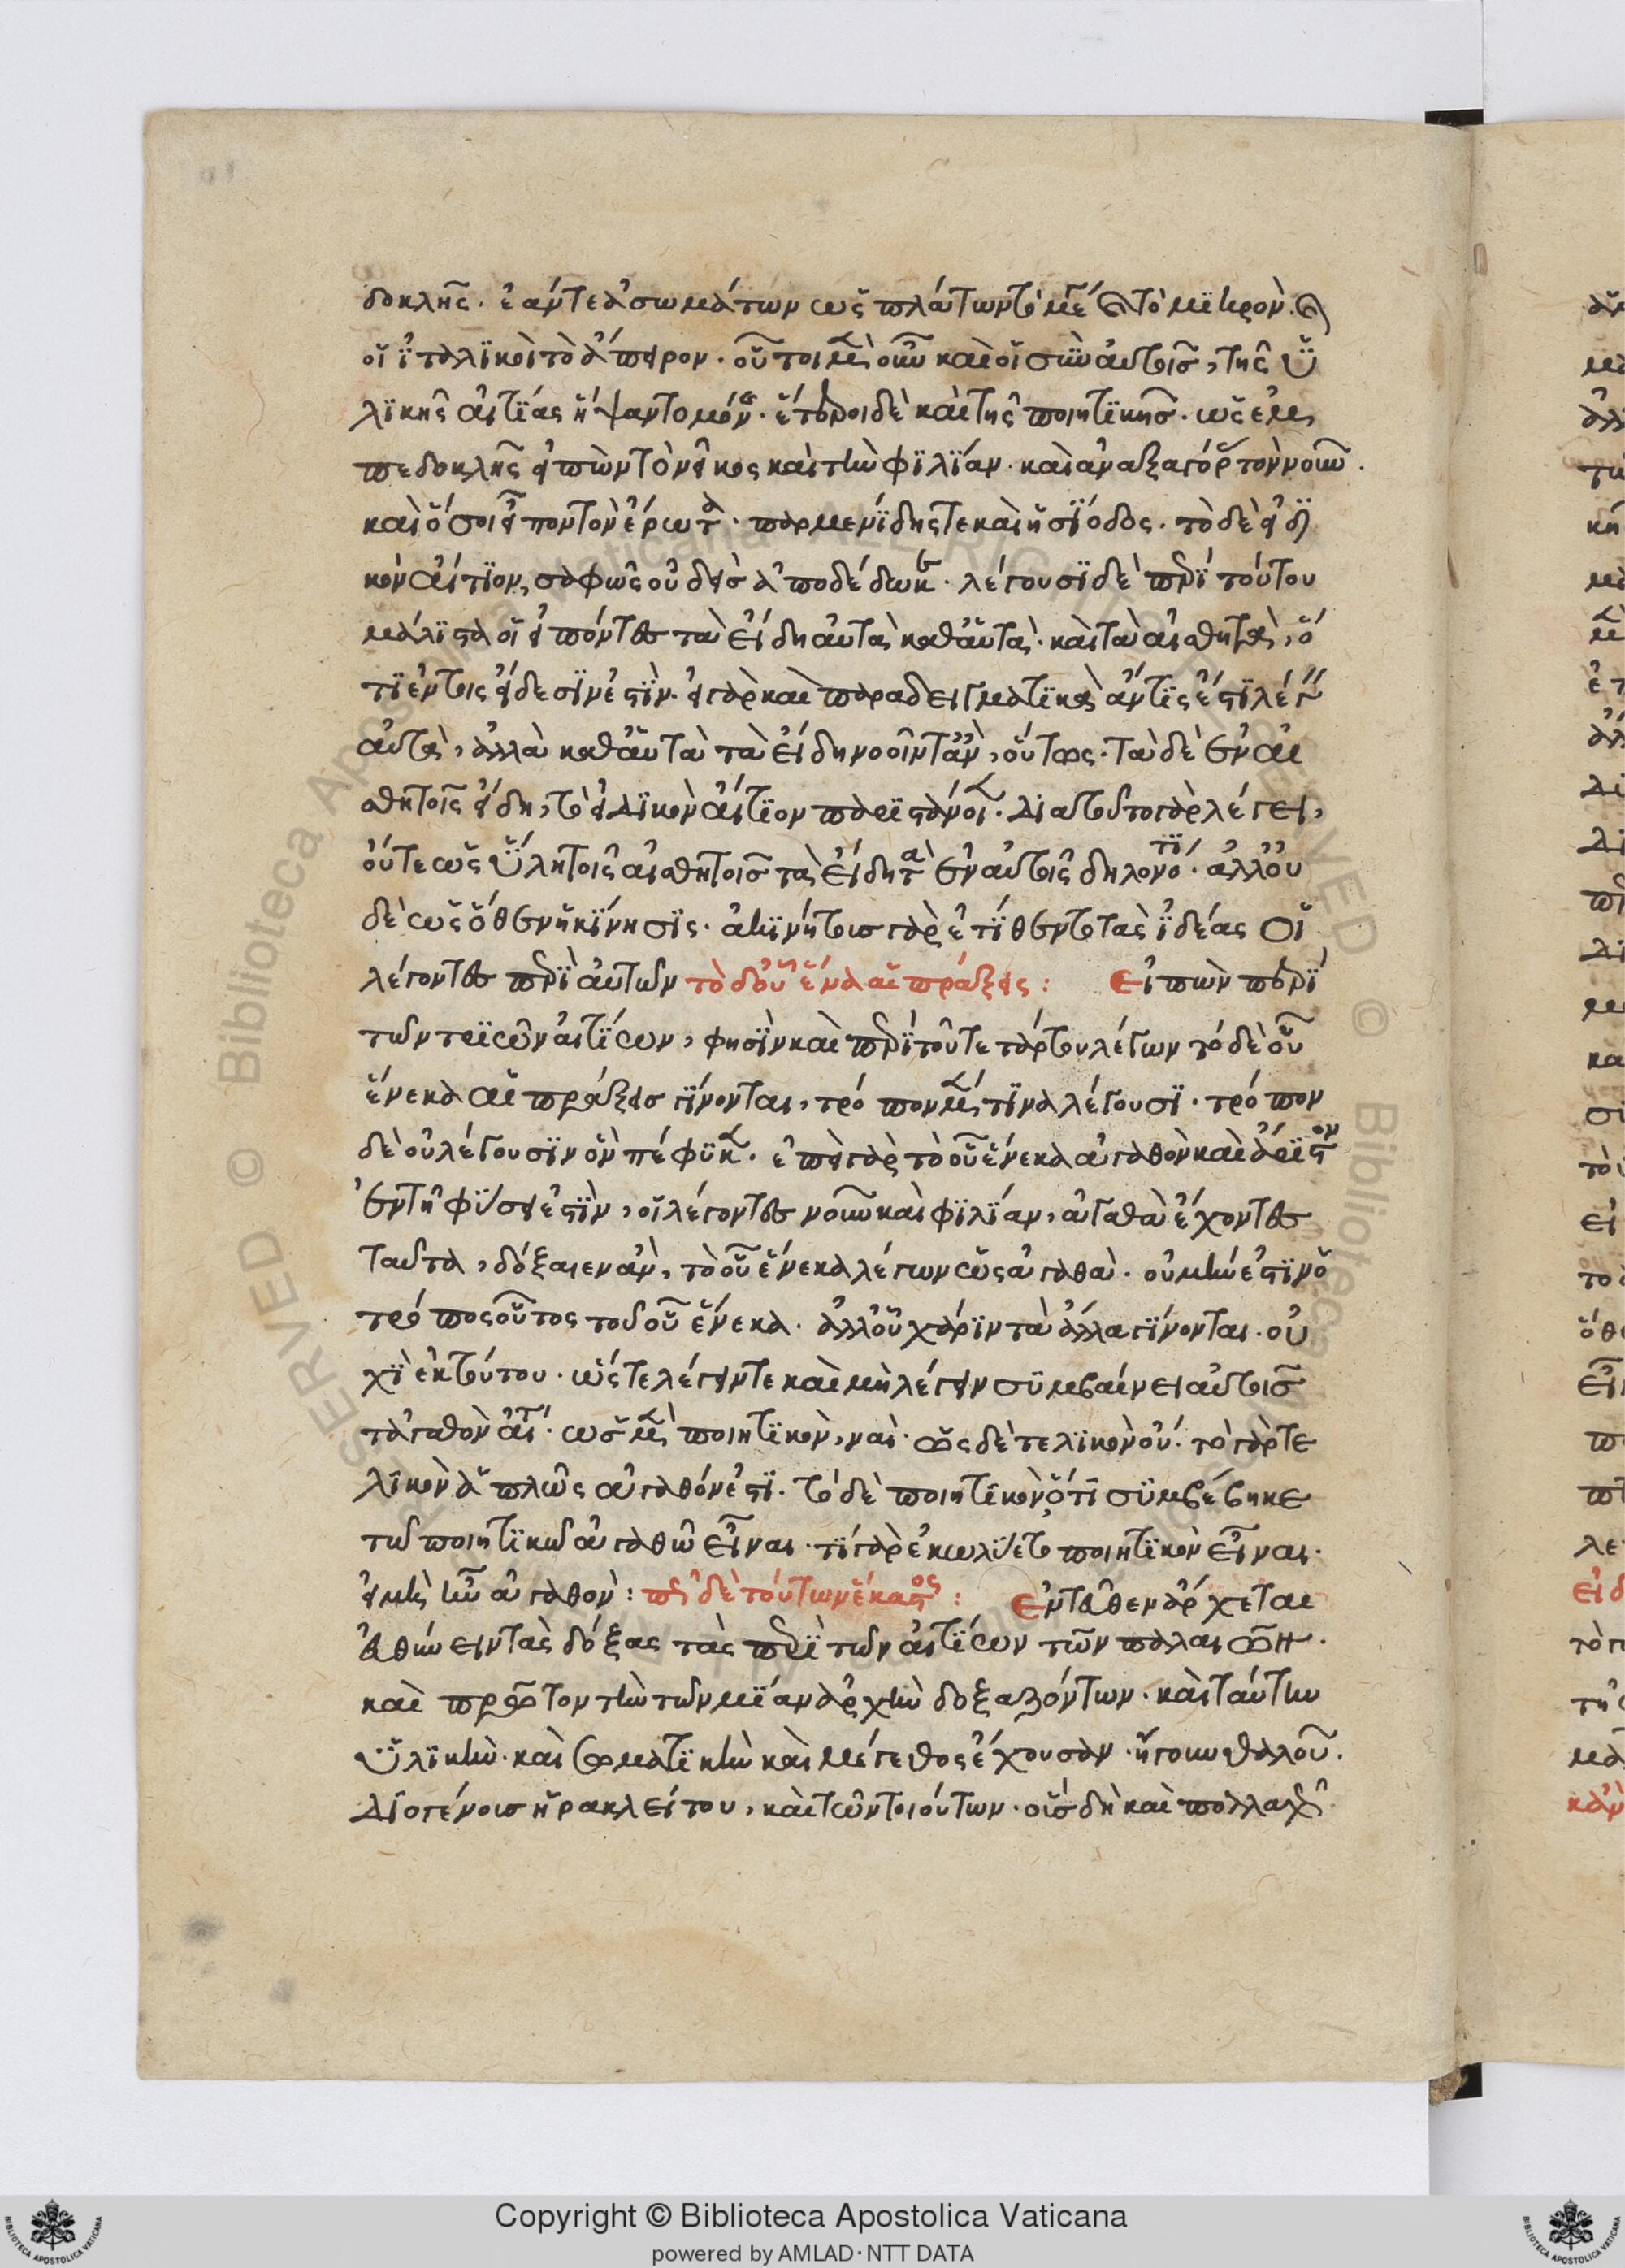 δοκλῆς. ἐάν τε ἀσωμάτων ὡς πλάτων τὸ μέγα καὶ τὸ μικρὸν. καὶ
οἱ ἰταλικοὶ τὸ ἄπειρον. οὗτοι μὲν οὖν καὶ οἱ σὺν αὐτοῖς, τῆς ὑ
λικῆς αἰτίας ἥψαντο μόνης. ἕτεροι δὲ καὶ τῆς ποιητικῆς. ὡς ἐμ
πεδοκλῆς εἰπὼν τὸ νεῖκος καὶ τὴν φιλίαν. καὶ ἀναξαγόρας τὸν νοῦν.
καὶ ὅσοι εἶπον τὸν ἔρωτα. παρμενίδης τε καὶ ἡσίοδος. τὸ δὲ εἰδι
κὸν αἴτιον, σαφῶς οὐδεὶς ἀποδέδωκε. λέγουσι δὲ περὶ τούτου
μάλιστα οἱ εἰπόντες τὰ εἴδη αὐτὰ καθ' αὑτὰ. καὶ τὰ αἰσθητὰ, ὅ
τι ἐν τοῖς εἴδεσίν ἐστιν. εἰ γὰρ καὶ παραδειγματικὰ ἄν τις ἔτι λέγειν
αὐτὰ, ἀλλὰ καθ' αὑτὰ τὰ εἴδη νοοῖντ' ἂν, οὕτως. τὰ δὲ ἐν αἰ
σθητοῖς εἴδη, τὸ εἰδικὸν αἴτιον παριστάνοι. διὰ τοῦτο γὰρ λέγει,
οὔτε ὡς ὕλη τοῖς αἰσθητοῖς τὰ εἴδη τὰ ἐν αὐτοῖς δηλονότι. ἀλλ' οὐ
δὲ ὡς ὅθεν ἡ κίνησις. ἀκινήτοις γὰρ ἐτίθεντο τὰς ἰδέας οἱ
λέγοντες περὶ αὐτῶν τὸ δ' οὗ ἕνεκα αἱ πράξεις: Εἰπὼν περὶ
τῶν τριῶν αἰτίων, φησὶν καὶ περὶ τοῦ τετάρτου λέγων τὸ δὲ οὗ
ἕνεκα αἱ πράξεις γίνονται, τρόπον μέν τινα λέγουσι. τρόπον
δὲ οὐ λέγουσιν ὃν πέφυκεν. ἐπεὶ γὰρ τὸ οὗ ἕνεκα ἀγαθὸν καὶ ἄριστον
ἐν τῇ φύσει ἐστὶν, οἱ λέγοντες νοῦν καὶ φιλίαν, ἀγαθὰ ἔχοντες
ταῦτα, δόξαιεν ἂν, τὸ οὗ ἕνεκα λέγων ὡς ἀγαθὰ. οὐ μὴν ἐστὶν ὁ
τρόπος οὗτος τοῦ οὗ ἕνεκα. ἀλλ' οὗ χάριν τὰ ἄλλα γίνονται. οὐ
χὶ ἐκ τούτου. ὥστε λέγειν τε καὶ μὴ λέγειν συμβαίνει αὐτοῖς
τἀγαθὸν αἴτιον. ὡς μὲν ποιητικὸν, ναὶ. ὡς δὲ τελικὸν οὐ. τὸ γὰρ τε
λικὸν ἁπλῶς ἀγαθόν ἐστι. τὸ δὲ ποιητικὸν ὅτι συμβέβηκε
τῷ ποιητικῷ ἀγαθῷ εἶναι. τί γὰρ ἐκωλύετο ποιητικὸν εἶναι.
εἰ μὴ ἦν ἀγαθὸν: περὶ δὲ τούτων ἕκαστος: Ἐντεῦθεν ἄρχεται
ἀθύειν τὰς δόξας τὰς περὶ τῶν αἰτίων τῶν πάλαι
καὶ πρῶτον τὴν τῶν μίαν ἀρχὴν δοξαζόντων. καὶ ταύτην
ὑλικὴν. καὶ σωματικὴν καὶ μέγεθος ἔχουσαν. ἤγουν θαλοῦ.
Διογένοις ἡρακλείτου, καὶ τῶν τοιούτων. οἷς δὴ καὶ πολλαχῆ